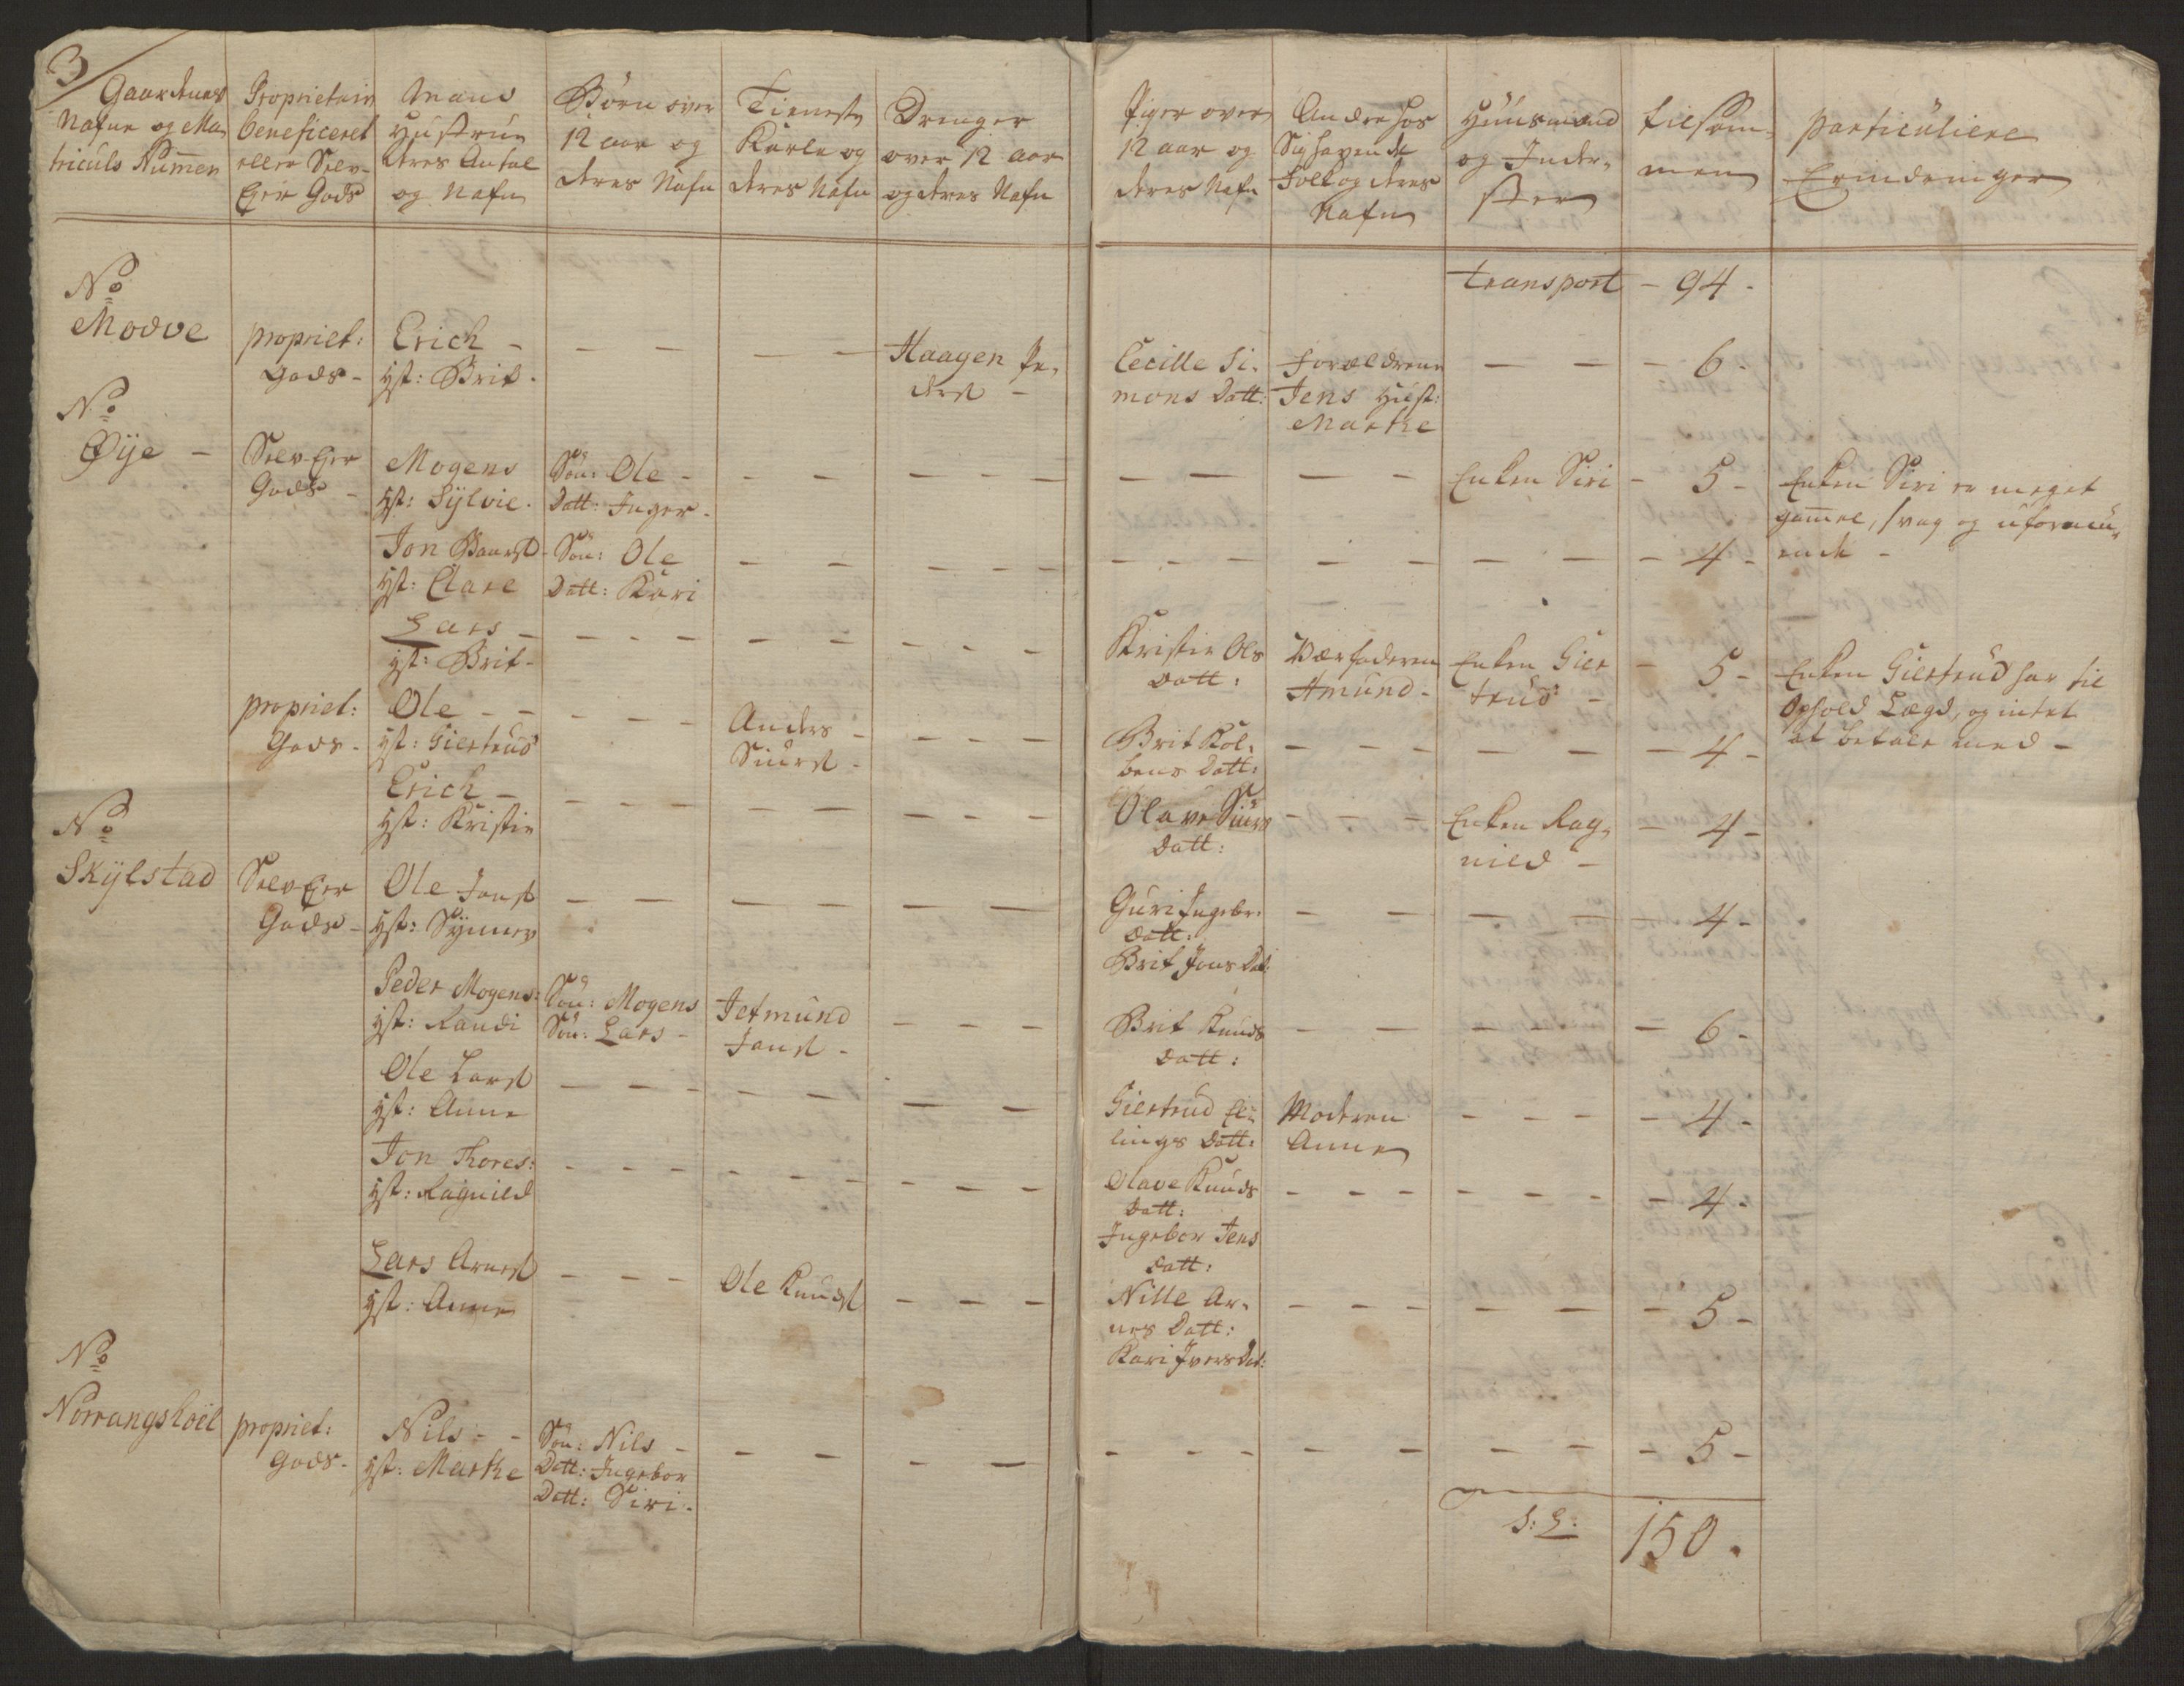 3
Gaardenes
Nafne og Ma-
triculs Numer
Proprietair
beneficeret
eller Selv-
Ejer Gods
Mand
Hustrue
deres Antal
og Nafn
Børn over
12 aar og
deres Nafn
Tieneste
Karle og
deres Nafn
Drenger
over 12 aar
og deres Nafn
Piger over
12 aar og
deres Nafn
Andre hos
Sig havende
Folk og deres
Nafn
Huusmænd
og Inder-
ster
tilsam-
men
particuliere
Erindringer
transport - 94 -
No
Modve
propriet:
Gods -
Erich -
Hst: Brit -
Haagen Pe-
ders -
Cecille Si-
mons Datt:
Forældrene
Jens Hust:
Marthe
- 6 -
No
Øÿe -
Selv Ejer
Gods -
Mogens
Hst: Sÿlvie -
Søn: Ole -
Datt: Inger -
Enken Siri
- 5 -
Enken Siri er meget
gamel, svag og uformu-
ende -
Jon
Hst: Clare
Søn: Ole
Datt: Kari
- 4 -
Lars -
Hst: Brit -
Kristie Ols
Datt:
Værfaderen
Amund -
Enken Gier
trud -
- 5 -
Enken Giertrud har til
Ophold Lægd, og intet
at betale med -
propriet:
Gods -
Ole - -
Hst: Giertrud
Anders
Siurs -
Brit Kol-
bens Datt:
- 4 -
Erich -
Hst: Kristie
Olave Siurs
Datt:
Enken Rag-
nild -
- 4 -
No
Skÿlstad
Selv Ejer
Gods -
Ole Jons
Hst: Sÿnnev
Guri Ingebr:
Datt:
Brit Jons Dat:
- 4 -
Peder Mogens:
Hst: Randi
Søn: Mogens
Søn: Lars -
Jetmund
Jons -
Brit Knuds
Datt:
- 6 -
Ole Lars
Hst: Anne
Giertrud El-
lings Datt:
Moderen
Anne
- 4 -
Jon Thores:
Hst: Ragnild
Olave Knuds
Datt:
- 4 -
Lars Arnes
Hst: Anne
Ole Knuds
Ingebor Jens
Datt:
Nille Ar-
nes Datt:
Kari Ivers Dat:
- 5 -
No
Norrangsdoël
propriet:
Gods -
Nils - -
Hst: Marthe
Søn: Nils -
Datt: Ingebor
Datt: Siri -
- 5 -
S: L:
150 .